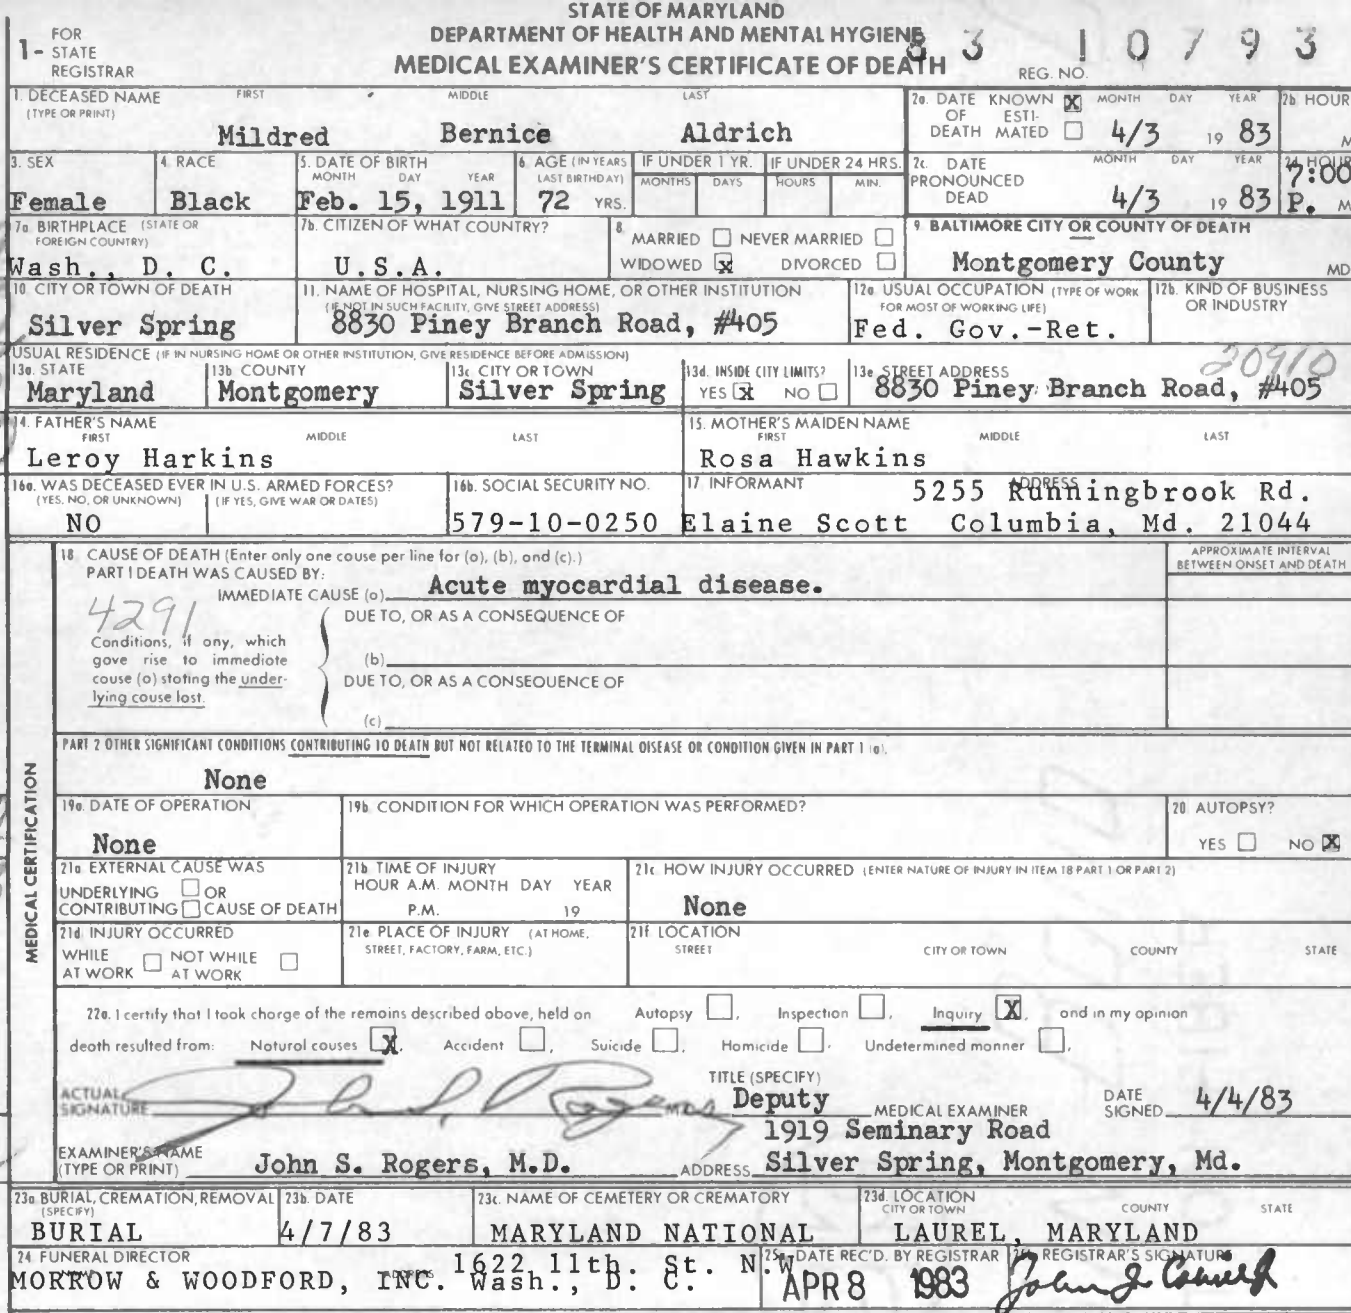 STATE OF MARYLAND
DEPARTMENT OF HEALTH AND MENTAL HYGIENE
MEDICAL EXAMINER'S CERTIFICATE OF DEATH
1- FOR STATE REGISTRAR
REG. NO. 83 10793
1. DECEASED NAME (TYPE OR PRINT) FIRST MIDDLE LAST
Mildred Bernice Aldrich
2a. DATE OF DEATH KNOWN X ESTIMATED MONTH DAY YEAR
4/3 19 83
2b HOUR M
3. SEX
Female
4. RACE
Black
5. DATE OF BIRTH MONTH DAY YEAR
Feb. 15, 1911
6. AGE (IN YEARS LAST BIRTHDAY)
72 YRS.
IF UNDER 1 YR. MONTHS DAYS
IF UNDER 24 HRS. HOURS MIN.
2c. DATE PRONOUNCED DEAD MONTH DAY YEAR
4/3 19 83
2d HOUR
7:00 P. M
7a. BIRTHPLACE (STATE OR FOREIGN COUNTRY)
Wash., D. C.
7b. CITIZEN OF WHAT COUNTRY?
U.S.A.
8. MARRIED NEVER MARRIED
WIDOWED X DIVORCED
9. BALTIMORE CITY OR COUNTY OF DEATH
Montgomery County MD
10. CITY OR TOWN OF DEATH
Silver Spring
11. NAME OF HOSPITAL, NURSING HOME, OR OTHER INSTITUTION
(IF NOT IN SUCH FACILITY, GIVE STREET ADDRESS)
8830 Piney Branch Road, #405
12a. USUAL OCCUPATION (TYPE OF WORK FOR MOST OF WORKING LIFE)
Fed. Gov.-Ret.
12b. KIND OF BUSINESS OR INDUSTRY
USUAL RESIDENCE (IF IN NURSING HOME OR OTHER INSTITUTION, GIVE RESIDENCE BEFORE ADMISSION)
13a. STATE
Maryland
13b COUNTY
Montgomery
13c CITY OR TOWN
Silver Spring
13d. INSIDE CITY LIMITS?
YES X NO
13e STREET ADDRESS 20910
8830 Piney Branch Road, #405
14. FATHER'S NAME FIRST MIDDLE LAST
Leroy Harkins
15. MOTHER'S MAIDEN NAME FIRST MIDDLE LAST
Rosa Hawkins
16a. WAS DECEASED EVER IN U.S. ARMED FORCES?
(YES, NO, OR UNKNOWN) (IF YES, GIVE WAR OR DATES)
NO
16b. SOCIAL SECURITY NO.
579-10-0250
17 INFORMANT ADDRESS
Elaine Scott 5255 Runningbrook Rd.
Columbia, Md. 21044
MEDICAL CERTIFICATION
18. CAUSE OF DEATH (Enter only one cause per line for (a), (b), and (c).)
PART I DEATH WAS CAUSED BY:
IMMEDIATE CAUSE (a) Acute myocardial disease.
APPROXIMATE INTERVAL BETWEEN ONSET AND DEATH
4291
Conditions, if any, which
gave rise to immediate
cause (a) stating the under-
lying cause last.
DUE TO, OR AS A CONSEQUENCE OF
(b)
DUE TO, OR AS A CONSEQUENCE OF
(c)
PART 2 OTHER SIGNIFICANT CONDITIONS CONTRIBUTING TO DEATH BUT NOT RELATED TO THE TERMINAL DISEASE OR CONDITION GIVEN IN PART 1 (a).
None
19a. DATE OF OPERATION
None
19b. CONDITION FOR WHICH OPERATION WAS PERFORMED?
20 AUTOPSY?
YES NO X
21a EXTERNAL CAUSE WAS
UNDERLYING OR
CONTRIBUTING CAUSE OF DEATH
21b TIME OF INJURY
HOUR A.M. MONTH DAY YEAR
P.M. 19
21c HOW INJURY OCCURRED (ENTER NATURE OF INJURY IN ITEM 18 PART 1 OR PART 2)
None
21d INJURY OCCURRED
WHILE AT WORK NOT WHILE AT WORK
21e PLACE OF INJURY (AT HOME, STREET, FACTORY, FARM, ETC.)
21f LOCATION
STREET CITY OR TOWN COUNTY STATE
22a. I certify that I took charge of the remains described above, held on Autopsy , Inspection , Inquiry X, and in my opinion
death resulted from: Natural causes X, Accident , Suicide , Homicide , Undetermined manner ,
ACTUAL SIGNATURE John S. Rogers
TITLE (SPECIFY)
Deputy MEDICAL EXAMINER
DATE SIGNED 4/4/83
EXAMINER'S NAME (TYPE OR PRINT) John S. Rogers, M.D.
ADDRESS 1919 Seminary Road
Silver Spring, Montgomery, Md.
23a BURIAL, CREMATION, REMOVAL (SPECIFY)
BURIAL
23b. DATE
4/7/83
23c. NAME OF CEMETERY OR CREMATORY
MARYLAND NATIONAL
23d. LOCATION CITY OR TOWN COUNTY STATE
LAUREL, MARYLAND
24 FUNERAL DIRECTOR
MORROW & WOODFORD, INC. 1622 11th. St. N.W
Wash., D. C.
25a DATE REC'D. BY REGISTRAR
APR 8 1983
REGISTRAR'S SIGNATURE
John J.